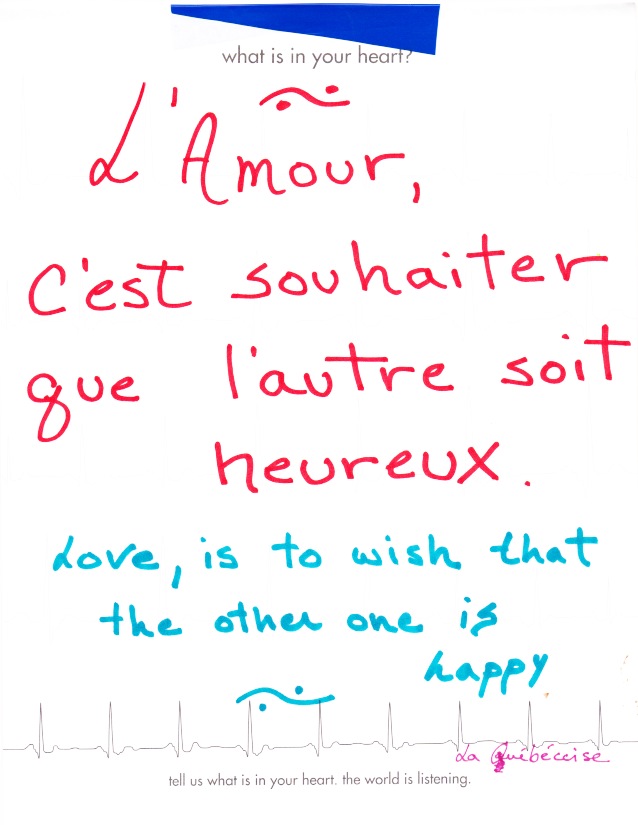 what is in your heart?
L'Amour,
C'est souhaiter
que l'autre soit
heureux.
Love, is to wish that
the other one is
happy
La Québécoise
tell us what is in your heart. the world is listening.